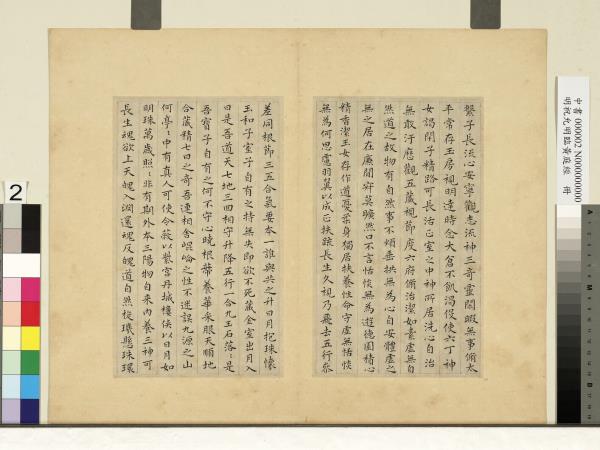 中書 000002 N000000000
明祝允明臨黃庭經 冊
繫子長流心安寧觀志流神三奇靈閒暇無事脩太
平常存玉房視明達時念大倉不飢渴役使六丁神
女謁閉子精路可長活正室之中神所居洗心自治
無敢汙歷觀五藏視節度六府脩治潔如素虛無自
然道之故物有自然事不煩垂拱無為心自安體虛之
無之居在廉間寂莫曠然口不言恬惔無為遊德園積心
精香潔玉女存作道憂柔身獨居扶養性命守虛無恬惔
無為何思慮羽翼以成正扶踈長生久視乃飛去五行參
差同根節三五合氣要本一誰與共之升日月抱珠懷
玉和子室子自有之持無失即欲不死藏金室出月入
日是吾道天七地三回相守升降五行一合九玉石落〻是
吾寶子自有之何不守心曉根蒂養華采服天順地
合藏精七日之奇吾連相舍崐崘之性不迷誤九源之山
何亭〻中有真人可使令蔽以紫宮丹城樓俠以日月如
明珠萬歲照〻非有期外本三陽物自來內養三神可
長生魂欲上天魄入淵還魂反魄道自然旋璣懸珠環
2
A
M
B